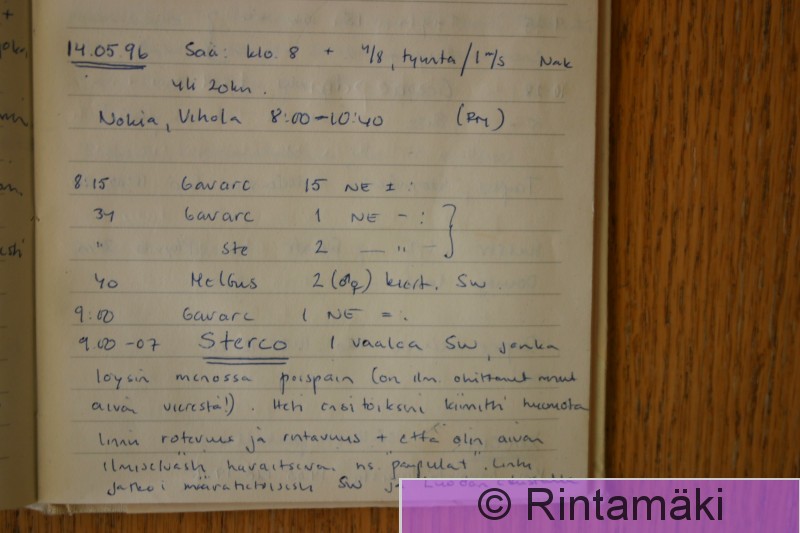 14.05.96 Sää: klo. 8 + 4/8, tyyntä/1 m/s Näk
yli 20km.
Nokia, Vihola 8:00-10:40 (RM)
8:15 Gavarc 15 NE ± :
34 Gavarc 1 NE - :
" Ste 2 — " —
40 MelGus 2 (♂♀) kiert. SW.
9:00 Gavarc 1 NE = :
9.00-07 Sterco 1 vaalea SW, jonka
löysin menossa poispäin (on ilm. ohittanut mut
aivan vierestä!). Heti ensitöikseni kiinnitti huomiota
linnun rotevuus ja rintavuus + että olin aivan
ilmiselvästi havaitsevan ns. "pampulat". Lintu
jatkoi määrätietoisesti SW
© Rintamäki